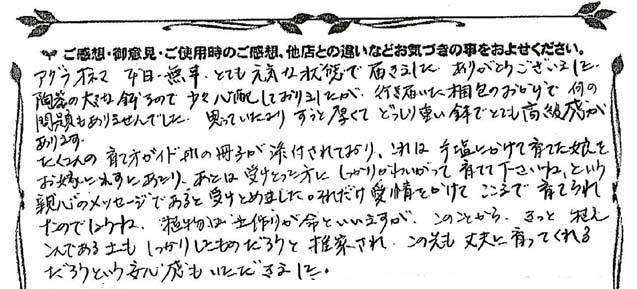 ご感想・御意見・ご使用時のご感想、他店との違いなどお気づきの事をおよせください。
アグラオネマ 本日・無事、とても元気な状態で届きました。ありがとうございました。
陶器の大きな鉢なので少々心配しておりましたが、行き届いた梱包のおかげで何の
問題もありませんでした。思っていたよりずっと厚くてどっしり重い鉢でとても高級感が
あります。
たくさんの育て方ガイド用の冊子が添付されており、これは手塩にかけて育てた娘を
お嫁に出すにあたり、あとは受けとった方にしっかりかわいがって育てて下さいね、という
親心のメッセージであると受けとめました。それだけ愛情をかけてここまで育てられ
たのでしょうね。植物は土作りが命といいますが、このことから、きっと植え
こんである土もしっかりしたものだろうと推察され、この先も丈夫に育ってくれる
だろうという安心感もいただきました。